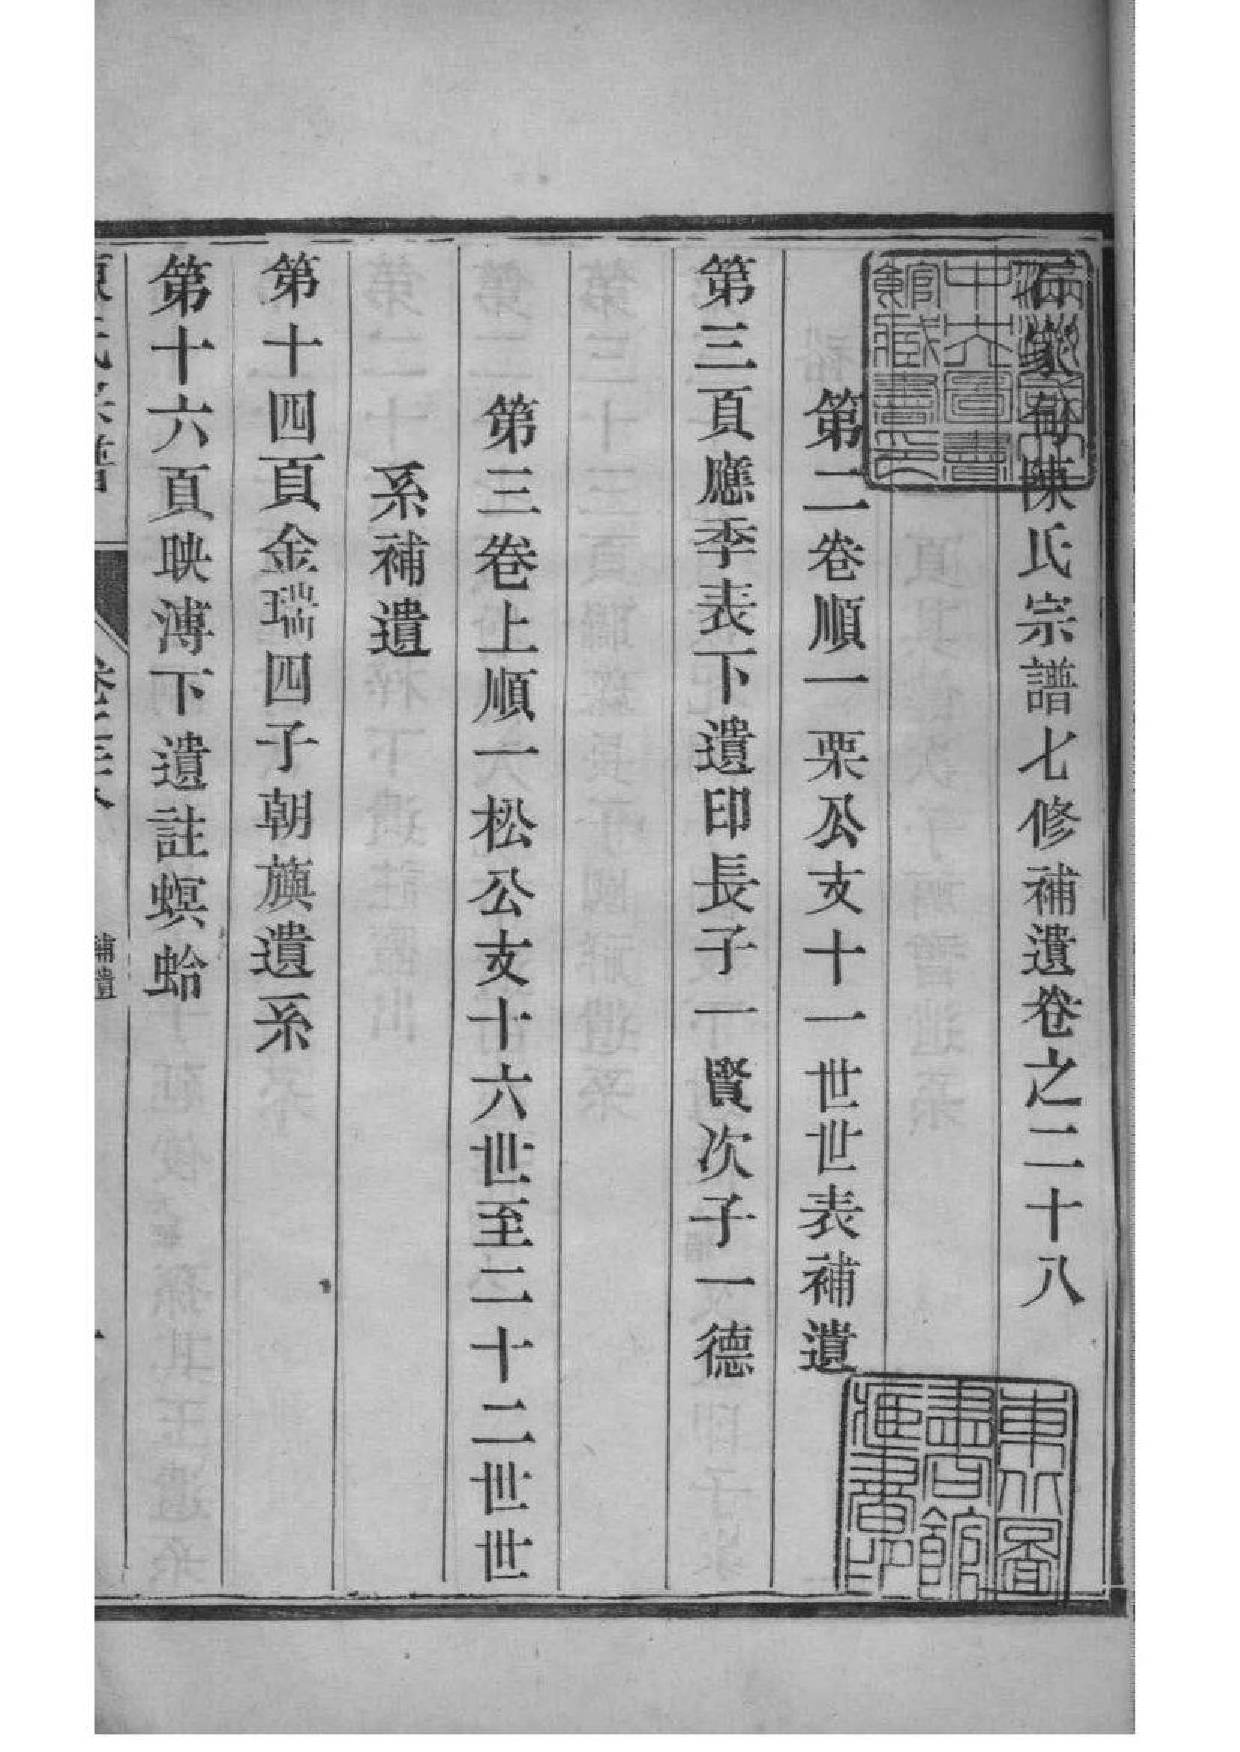 陳氏宗譜七修補遺卷之二十八
第二卷順一栗公支十一世世表補遺
第三頁應季表下遺印長子一賢次子一德
第三卷上順一松公支十六世至二十二世世
系補遺
第十四頁金瑞四子朝旗遺系
第十六頁映溥下遺註螟蛤
氏宗譜
補遺
一
中央圖書
館藏書印
東北圖